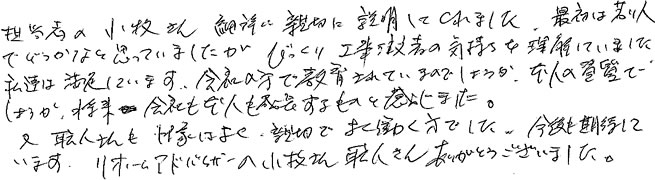 担当者の小牧さん 細詳に親切に説明してくれました。最初は若い人
でどうかなと思っていましたが びっくり 工事依頼者の気持ちを理解していました
私達は満足しています。会社の方で教育されているのでしょうか、本人の資質で
しょうか、将来 会社も本人も成長するものと感じました。
又 職人さんも 対応はよく、親切で よく働く方でした。今後も期待して
います。リホームアドバイザーの小牧さん 職人さん ありがとうございました。